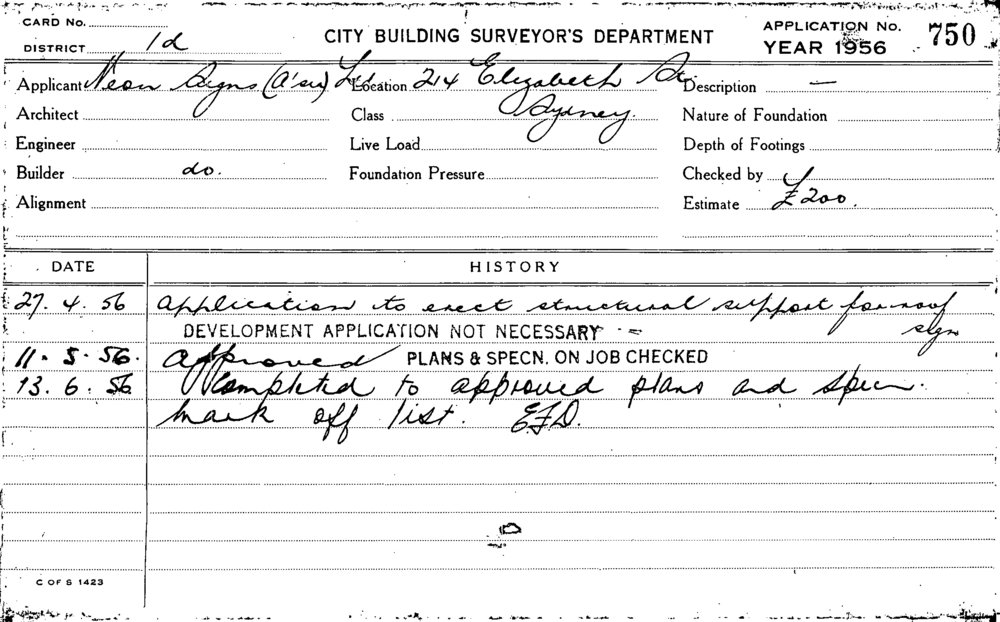 CARD No.
DISTRICT 1d
CITY BUILDING SURVEYOR'S DEPARTMENT
APPLICATION No. 750
YEAR 1956
Applicant Neon Signs (A'sia) Ltd Location 214 Elizabeth St. Description —
Sydney.
Architect Class Nature of Foundation
Engineer Live Load Depth of Footings
Builder do. Foundation Pressure Checked by
Alignment Estimate £200.
DATE HISTORY
27. 4. 56 Application to erect structural support for roof
sign
DEVELOPMENT APPLICATION NOT NECESSARY
11. 5. 56. Approved PLANS & SPECN. ON JOB CHECKED
13. 6. 56 Completed to approved plans and specn.
mark off list. E.F.D.
C OF S 1423